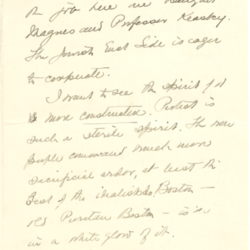 the job here in
Magnes and Professor Keasbey.
The Jewish East Side is eager
to cooperate.
I want to see the spirit of it
more constructive. Protest is
such a sterile spirit. The new
people command much more
sacrificial ardor, at least the
best of the idealists do. Boston –
yes Puritan Boston – is
in a white glow of it.